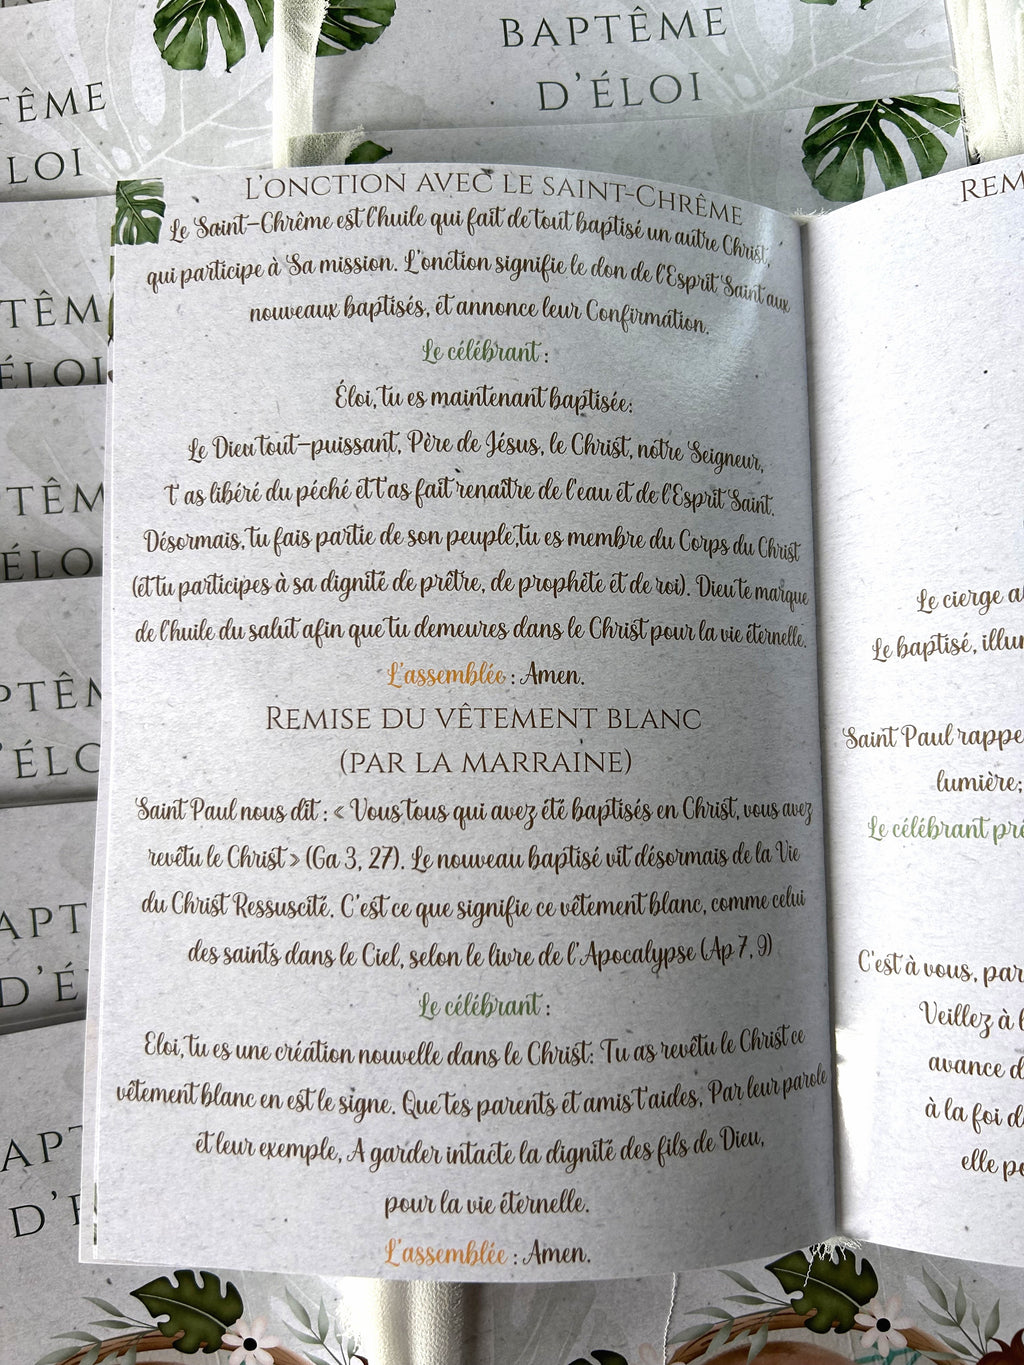 BAPTÊME
D'ÉLOI
TÊME
LOI
TÊM
ÉLOI
TÊM
ÉLO
PTÊM
D'ÉLO
APT
D'É
APT
D'É
L'ONCTION AVEC LE SAINT-CHRÊME
Le Saint-Chrême est l'huile qui fait de tout baptisé un autre Christ,
qui participe à Sa mission. L'onction signifie le don de l'Esprit Saint aux
nouveaux baptisés, et annonce leur Confirmation.
Le célébrant :
Éloi, tu es maintenant baptisée:
Le Dieu tout-puissant, Père de Jésus, le Christ, notre Seigneur,
t'as libéré du péché et t'as fait renaître de l'eau et de l'Esprit Saint.
Désormais, tu fais partie de son peuple,tu es membre du Corps du Christ
(et tu participes à sa dignité de prêtre, de prophète et de roi). Dieu te marque
de l'huile du salut afin que tu demeures dans le Christ pour la vie éternelle.
L'assemblée : Amen.
REMISE DU VÊTEMENT BLANC
(PAR LA MARRAINE)
Saint Paul nous dit : « Vous tous qui avez été baptisés en Christ, vous avez
revêtu le Christ » (Ga 3, 27). Le nouveau baptisé vit désormais de la Vie
du Christ Ressuscité. C'est ce que signifie ce vêtement blanc, comme celui
des saints dans le Ciel, selon le livre de l'Apocalypse (Ap 7, 9)
Le célébrant :
Eloi, tu es une création nouvelle dans le Christ: Tu as revêtu le Christ ce
vêtement blanc en est le signe. Que tes parents et amis t'aides, Par leur parole
et leur exemple, A garder intacte la dignité des fils de Dieu,
pour la vie éternelle.
L'assemblée : Amen.
REM
Le cierge a
Le baptisé, illu
Saint Paul rappe
lumière;
Le célébrant pré
C'est à vous, par
Veillez à l
avance d
à la foi d
elle p